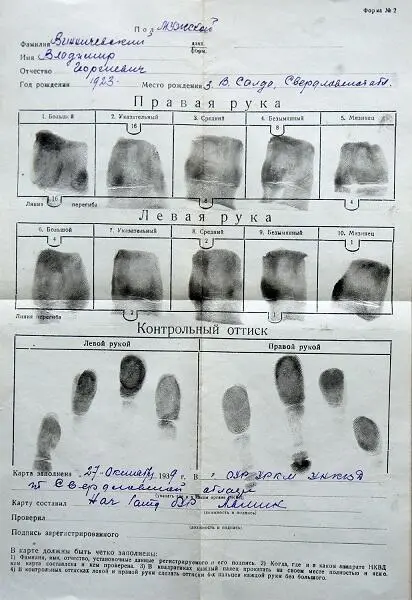 Форма № 2
Пол Мужской
Фамилия
Имя Владимир
Отчество Георгиевич
Год рождения 1923. Место рождения г. В. Салда, Свердловской обл.
Правая рука
1. Большой 2. Указательный 3. Средний 4. Безымянный 5. Мизинец
16 8
Линия перегиба
16 8 4
Левая рука
6. Большой 7. Указательный 8. Средний 9. Безымянный 10. Мизинец
4 2 1
Линия перегиба
2 1
Контрольный оттиск
Левой рукой Правой рукой
Карта заполнена „27" Октября 1939 г. В ОУР УРКМ УНКВД
по Свердловской области
Карту составил Нач
(должность и подпись)
Проверил
(должность и подпись)
Подпись зарегистрированного
В карте должны быть четко заполнены:
1) Фамилия, имя, отчество, установочные данные регистрируемого и его подпись. 2) Когда, где и в каком аппарате НКВД
кем карта составлена и кем проверена. 3) В квадратиках каждый палец прокатан на своем месте полностью и ясно.
4) В контрольных оттисках левой и правой руки сделать оттиски 4-х пальцев каждой руки без большого.